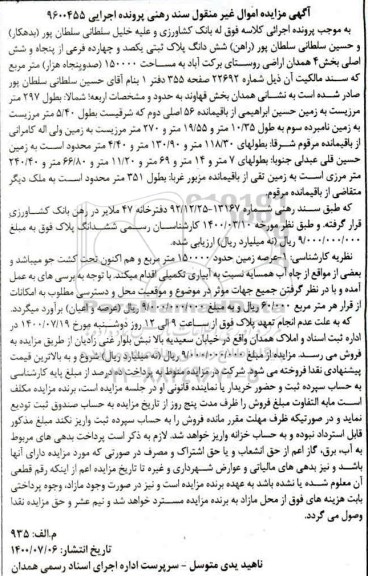 آگهی مزایده اموال غیر منقول سند رهنی پرونده اجرایی ۹۶۰۰۴۵۵
به موجب پرونده اجرائی کلاسه فوق له بانک کشاورزی و علیه خلیل سلطانی سلطان پور (بدهکار)
و حسین سلطانی سلطان پور (راهن) شش دانگ پلاک ثبتی یکصد و چهارده فرعی از پنجاه و شش
اصلی بخش۴ همدان اراضی روستای برکت آباد به مساحت ۱۵۰۰۰۰ (صدوپنجاه هزار) متر مربع
که سند مالکیت آن ذیل شماره ۲۲۶۹۲ صفحه ۳۵۵ دفتر ۱ بنام آقای حسین سلطانی سلطان پور
صادر شده است به نشانی همدان بخش قهاوند به حدود و مشخصات اربعه؛ شمالا: بطول ۲۹۷ متر
مرزیست به زمین حسین ابراهیمی از باقیمانده ۵۶ اصلی دوم که شرقیست بطول ۵/۴۰ متر مرزیست
به زمین نامبرده سوم به طول ۱۰/۳۵ متر و ۱۹/۵۵ متر و ۲۷۰ متر مرزیست به زمین ولی اله کامرانی
از باقیمانده مرقوم شرقا: بطولهای ۱۱۸/۳۰ متر و ۱۳۰/۹۰ متر و ۴/۴۰ متر محدود است به زمین
حسین قلی عبدلی جنوبا: بطولهای ۷ متر و ۱۴ متر و ۶۹ متر و ۱۱/۲۰ متر و ۶۶/۸۰ متر و ۲۴۰/۴۰
متر مرزی است به زمین تقی از باقیمانده مزبور غربا: بطول ۳۵۱ متر محدود است به ملک دیگر
متقاضی از باقیمانده مرقوم.
که طبق سند رهنی شماره ۱۳۱۶۷-۹۲/۱۲/۲۵ دفترخانه ۴۷ ملایر در رهن بانک کشاورزی
قرار گرفته، و طبق نظر مورخه ۱۴۰۰/۰۳/۱۰ کارشناسان رسمی ششدانگ پلاک فوق به مبلغ
۹/۰۰۰/۰۰۰/۰۰۰ ریال (نه میلیارد ریال) ارزیابی شده.
نظریه کارشناسی: ۱-عرصه زمین حدود ۱۵۰۰۰۰ متر مربع و هم اکنون تحت کشت جو میباشد و
بعضی از مواقع از چاه آب همسایه نسبت به آبیاری تکمیلی اقدام میکند. با توجه به بررسی های به عمل
آمده و با در نظر گرفتن جمیع جهات موثر در موضوع و موقعیت محل و دسترسی مطلوب به امکانات
از قرار هر متر مربع ۶۰/۰۰۰ ریال و به مبلغ ۹/۰۰۰/۰۰۰/۰۰۰ ریال (عرصه و اعیان) برآورد میگردد.
که به علت عدم انجام تعهد پلاک فوق از ساعت ۹ الی ۱۲ روز دوشنبه مورخ ۱۴۰۰/۰۷/۱۹ در
اداره ثبت اسناد و املاک همدان واقع در خیابان سعیدیه بالا نبش بلوار غنی زادیان از طریق مزایده به
فروش می رسد. مزایده از مبلغ ۹/۰۰۰/۰۰۰/۰۰۰ ریال (نه میلیارد ریال) شروع و به بالاترین قیمت
پیشنهادی نقدا فروخته می شود. شرکت در مزایده منوط به پرداخت ده درصد از مبلغ پایه کارشناسی
به حساب سپرده ثبت و حضور خریدار یا نماینده قانونی او در جلسه مزایده است، برنده مزایده مکلف
است مابه التفاوت مبلغ فروش را ظرف مدت پنج روز از تاریخ مزایده به حساب صندوق ثبت تودیع
نماید و در صورتیکه ظرف مهلت مقرر مانده فروش را به حساب سپرده ثبت واریز نکند مبلغ مذکور
قابل استرداد نبوده و به حساب خزانه واریز خواهد شد. لازم به ذکر است پرداخت بدهی های مربوط
به آب، برق، گاز اعم از حق انشعاب و یا حق اشتراک و مصرف در صورتی که مورد مزایده دارای آنها
باشد و نیز بدهی های مالیاتی و عوارض شهرداری و غیره تا تاریخ مزایده اعم از اینکه رقم قطعی
آن معلوم شده یا نشده باشد به عهده برنده مزایده است و نیز در صورت وجود مازاد، وجوه پرداختی
بابت هزینه های فوق از محل مازاد به برنده مزایده مسترد خواهد شد و نیم عشر و حق مزایده نقدا
وصول می گردد.
م.الف: ۹۳۵
تاریخ انتشار: ۱۴۰۰/۰۷/۰۶
ناهید یدی متوسل - سرپرست اداره اجرای اسناد رسمی همدان